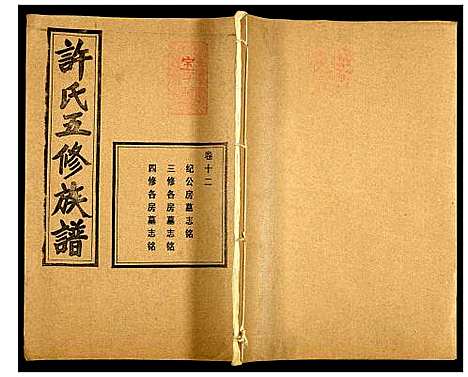 許氏五修族譜
卷十二
纪公房墓志铭
三修各房墓志铭
四修各房墓志铭